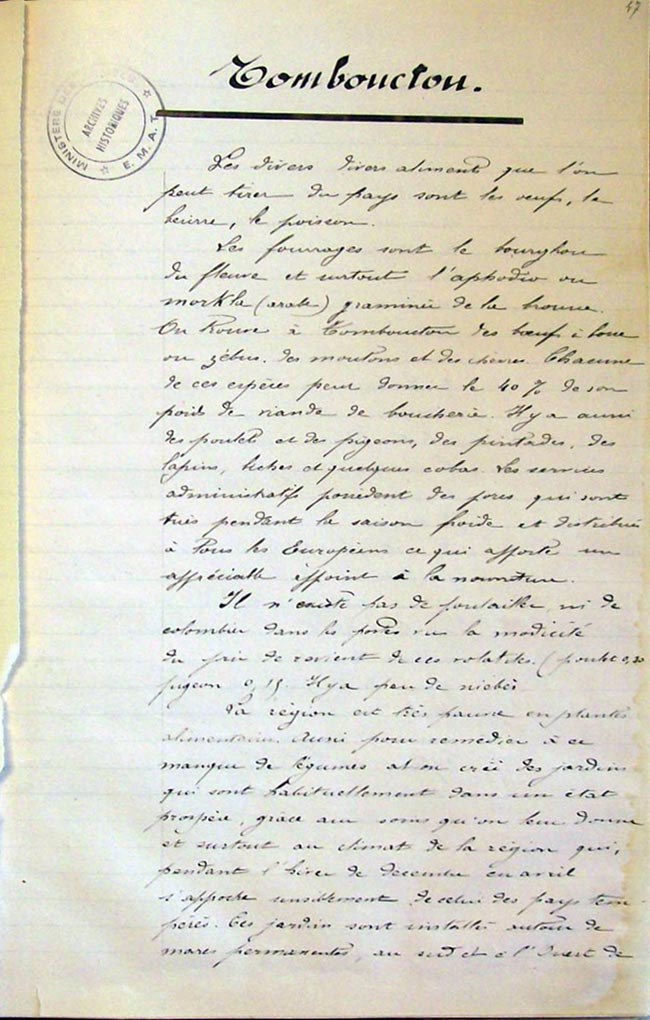 47
Tombouctou.
MINISTERE DES ARMEES
E.M.A.T.
ARCHIVES
HISTORIQUES
Les divers divers aliments que l'on
peut tirer du pays sont les oeufs, le
beurre, le poisson.
Les fourrages sont le bourghou
du fleuve et surtout l'aphodio ou
morkba (arabe) graminée de la brousse.
On trouve à Tombouctou des bœufs à bosse
ou zébus, des moutons et des chèvres. Chacune
de ces espèces peut donner le 40 % de son
poids de viande de boucherie. Il y a aussi
des poulets et des pigeons, des pintades, des
lapins, biches et quelques cobas. Les services
administratifs possèdent des porcs qui sont
tués pendant la saison froide et distribués
à tous les Européens ce qui apporte un
appréciable appoint à la nourriture.
Il n'existe pas de poulailler, ni de
colombier dans les postes vu la modicité
du prix de revient de ces volatiles. (poulet 0,30
pigeon 0,15. Il y a peu de niébés
La région est très pauvre en plantes
alimentaires. Aussi pour remédier à ce
manque de légumes a t on créé des jardins
qui sont habituellement dans un état
prospère, grâce aux soins qu'on leur donne
et surtout au climat de la région qui,
pendant l'hiver de décembre en avril
s'approche sensiblement de celui des pays tem-
pérés. Ces jardins sont installés autour de
mares permanentes, au sud et à l'Ouest de